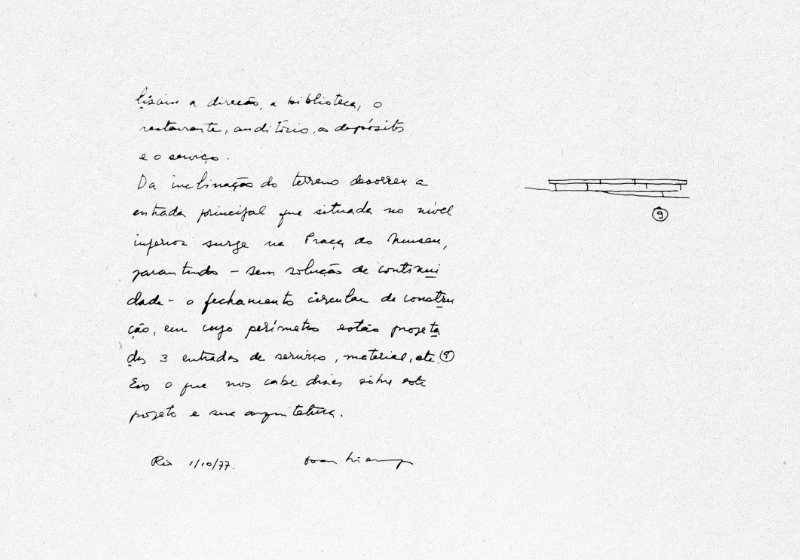 lizam a direção, a biblioteca, o
restaurante, auditório, os depósitos
e o serviço.
Da inclinação do terreno decorreu a
entrada principal que situada no nível
inferior surge na Praça do Museu,
garantindo – sem solução de continui
dade – o fechamento circular de constru
ção, em cujo perímetro estão projeta
das 3 entradas de serviço, material, etc. (9)
Eis o que nos cabe dizer sôbre este
projeto e sua arquitetura.
Rio 1/10/77.
9